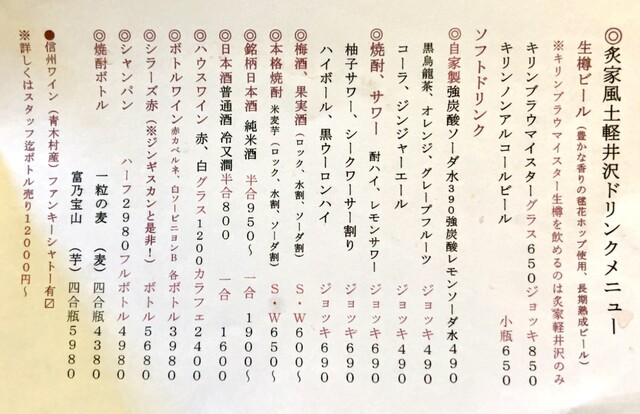 ◎炙家風土軽井沢ドリンクメニュー
生樽ビール（豊かな香りの毬花ホップ使用、長期熟成ビール）
※キリンブラウマイスター生樽を飲めるのは炙家軽井沢のみ
キリンブラウマイスターグラス650ジョッキ850
キリンノンアルコールビール 小瓶650
ソフトドリンク
◎自家製強炭酸ソーダ水390強炭酸レモンソーダ水490
黒烏龍茶、オレンジ、グレープフルーツ ジョッキ490
コーラ、ジンジャーエール ジョッキ490
◎焼酎、サワー 酎ハイ、レモンサワー ジョッキ690
柚子サワー、シークワーサー割り ジョッキ690
ハイボール、黒ウーロンハイ ジョッキ690
◎梅酒、果実酒（ロック、水割、ソーダ割）S・W600〜
◎本格焼酎 米麦芋（ロック、水割、ソーダ割）S・W650〜
◎銘柄日本酒 純米酒 半合950〜 一合 1900〜
◎日本酒普通酒 冷又澗 半合800 一合 1600
◎ハウスワイン 赤、白グラス1200カラフェ2400
◎ボトルワイン 赤カベルネ、白ソービニヨンB 各ボトル3980
◎シラーズ赤（※ジンギスカンと是非！）ボトル5680
◎シャンパン ハーフ2980フルボトル4980
◎焼酎ボトル 一粒の麦 （麦）四合瓶4380
富乃宝山 （芋）四合瓶5980
●信州ワイン（青木村産）ファンキーシャトー有〼
※詳しくはスタッフ迄ボトル売り12000円〜